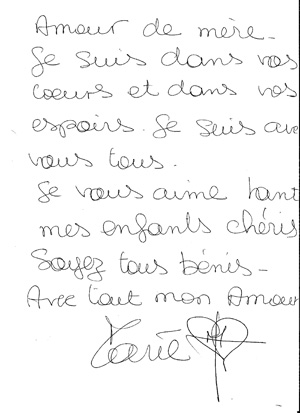 Amour de mère.
Je suis dans vos
coeurs et dans vos
espoirs. Je suis ave
vous tous.
Je vous aime tant
mes enfants chéris
Soyez tous bénis -
Avec tout mon Amour
Marie